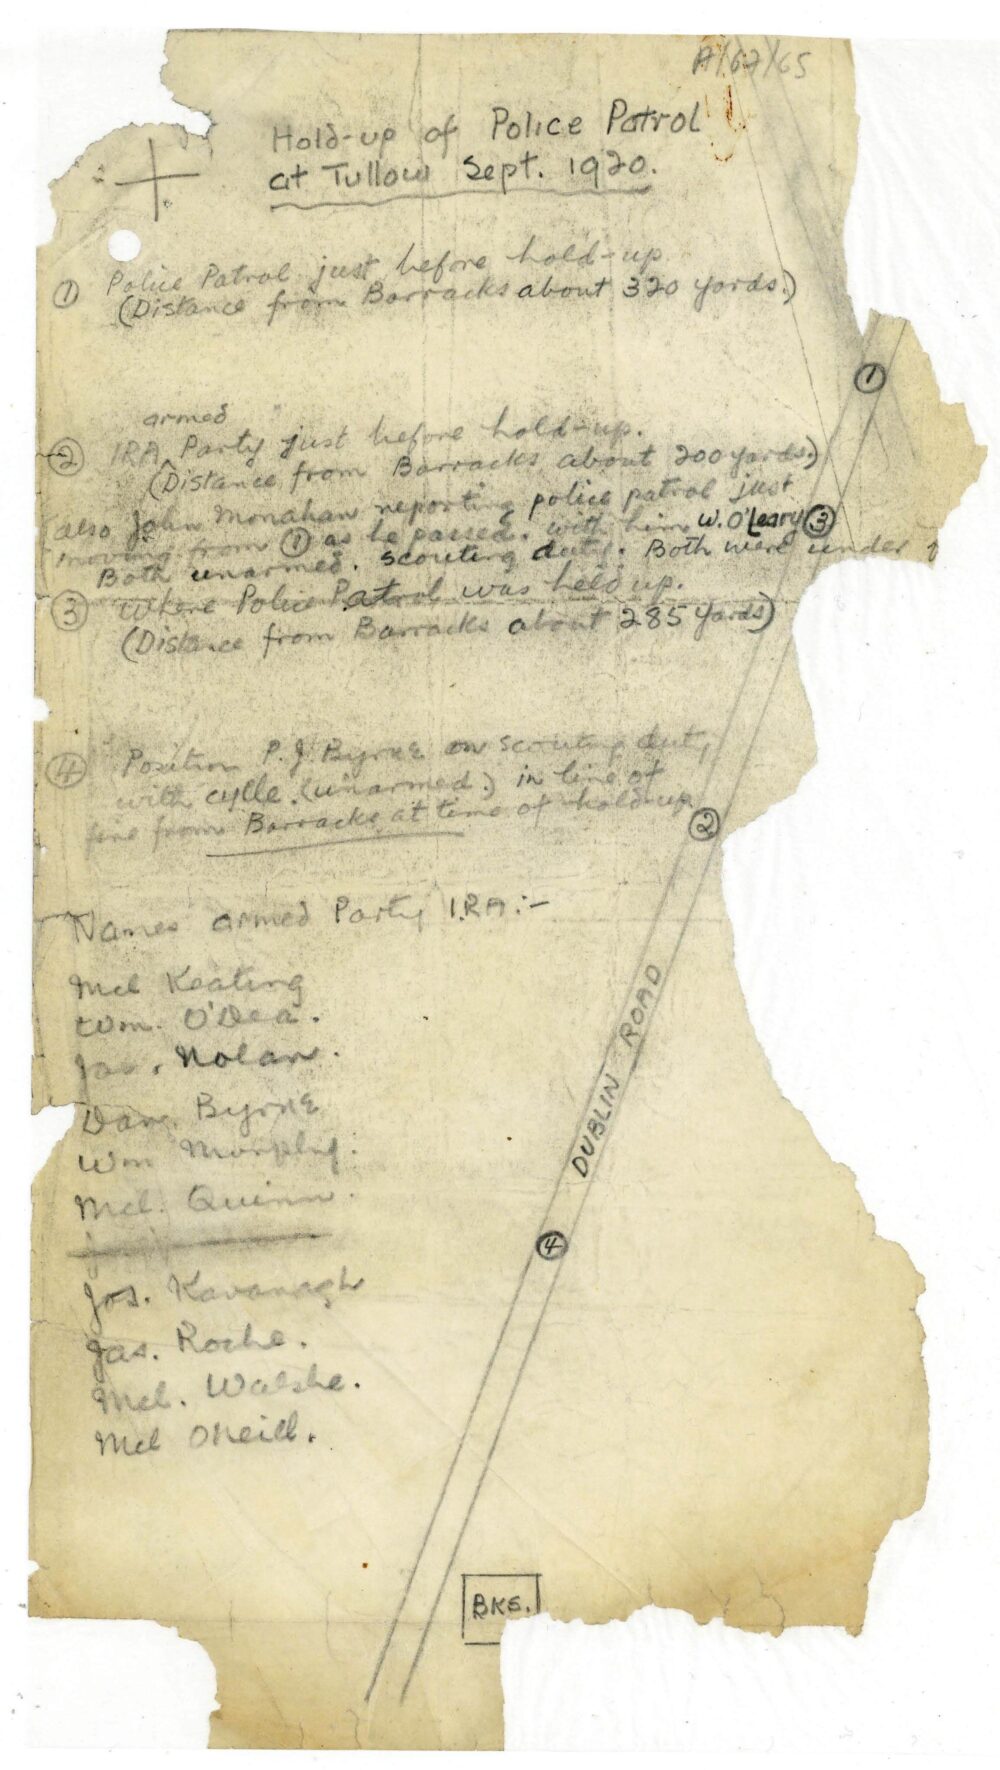 A/67/65
Hold-up of Police Patrol
at Tullow Sept. 1920.
① Police Patrol just before hold-up.
(Distance from Barracks about 320 yards.)
armed
② IRA Party just before hold-up.
(Distance from Barracks about 200 yards.)
(also John Monahan reporting police patrol just
moving from ① as he passed. with him W. O'Leary
Both unarmed. scouting duty. Both were under
③ Where Police Patrol was held up.
(Distance from Barracks about 285 yards)
④ Position P.J. Byrne on scouting duty
with cylle. (unarmed.) in line of
fire from Barracks at time of hold-up
Names armed Party I.R.A:-
Mcl Keating
Wm. O'Dea.
Jas. Nolan.
Dan. Byrne
Wm Murphy.
Mcl. Quinn.
Jos. Kavanagh
Jas. Roche.
Mcl. Walshe.
Mcl ONeill.
①
③
②
DUBLIN ROAD
④
BKS.